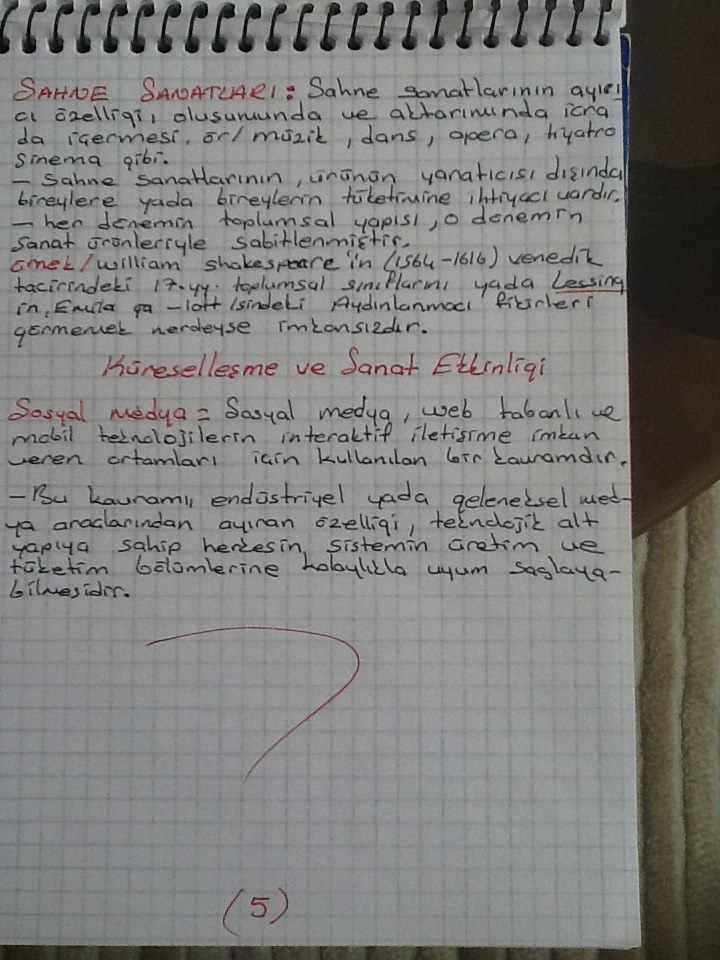 SAHNE SANATLARI: Sahne sanatlarının ayırı
cı özelliği, oluşumunda ve aktarımında icra
da içermesi. ör/ müzik, dans, opera, tiyatro
sinema gibi.
- Sahne sanatlarının, ürünün yaratıcısı dışında
bireylere yada bireylerin tüketimine ihtiyacı vardır.
- her dönemin toplumsal yapısı, o dönemin
sanat ürünleriyle sabitlenmiştir.
örnek/ William Shakespeare'in (1564-1616) venedik
tacirindeki 17.yy. toplumsal sınıflarını yada Lessing
in, Emila ga-lott'sindeki Aydınlanmacı fikirleri
görmemek nerdeyse imkansızdır.
Küreselleşme ve Sanat Etkinliği
Sosyal medya = Sosyal medya, web tabanlı ve
mobil teknolojilerin interaktif iletişime imkan
veren ortamları için kullanılan bir kavramdır.
- Bu kavramı, endüstriyel yada geleneksel med-
ya araçlarından ayıran özelliği, teknolojik alt
yapıya sahip herkesin, sistemin üretim ve
tüketim bölümlerine kolaylıkla uyum sağlaya-
bilmesidir.
(5)